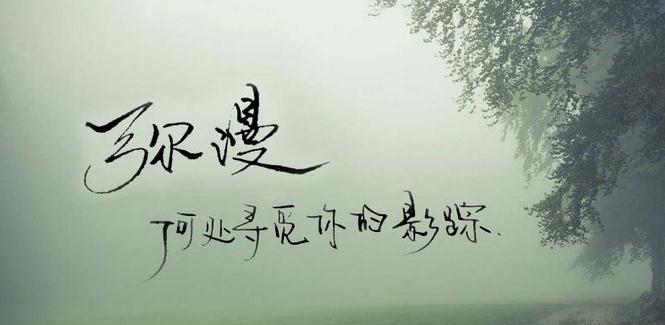 弥漫
何处寻觅你的影踪.